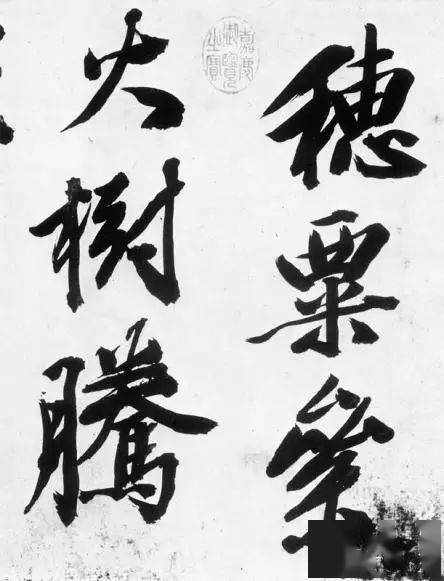 穗粟
火樹騰
嘉慶御覽之寶